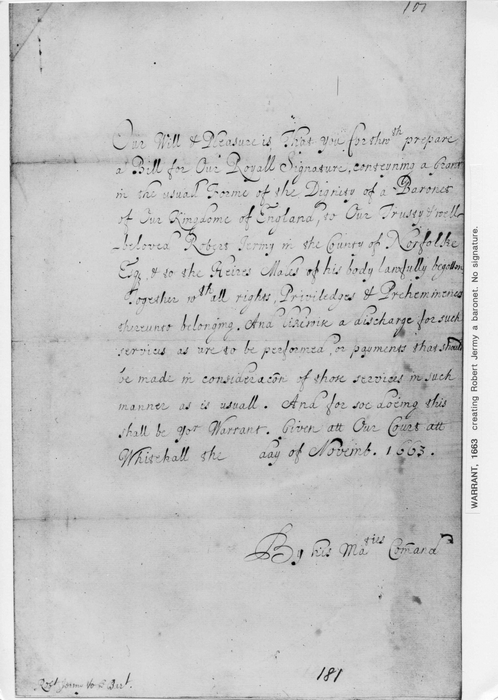 101
Our Will & Pleasure is, That you forthwth prepare
a Bill for Our Royall Signature, conteyning a Grant
in the usuall Forme of the Dignity of a Baronet
of Our Kingdome of England, to Our Trusty & well
beloved Robert Jermy in the County of Norfolke
Esq. & to the Heires Males of his body lawfully begotten
Together wth all rights, Priviledges & Preheminences
thereunto belonging. And likewise a discharge for such
services as are to be performed, or payments that should
be made in consideracõn of those services in such
manner as is usuall. And for soe doeing this
shall be yor Warrant. Given att Our Court att
Whitehall the day of Novemb. 1663.
By his Maties Comand
Robt Jermy to be Bart.
181
WARRANT, 1663 creating Robert Jermy a baronet. No signature.